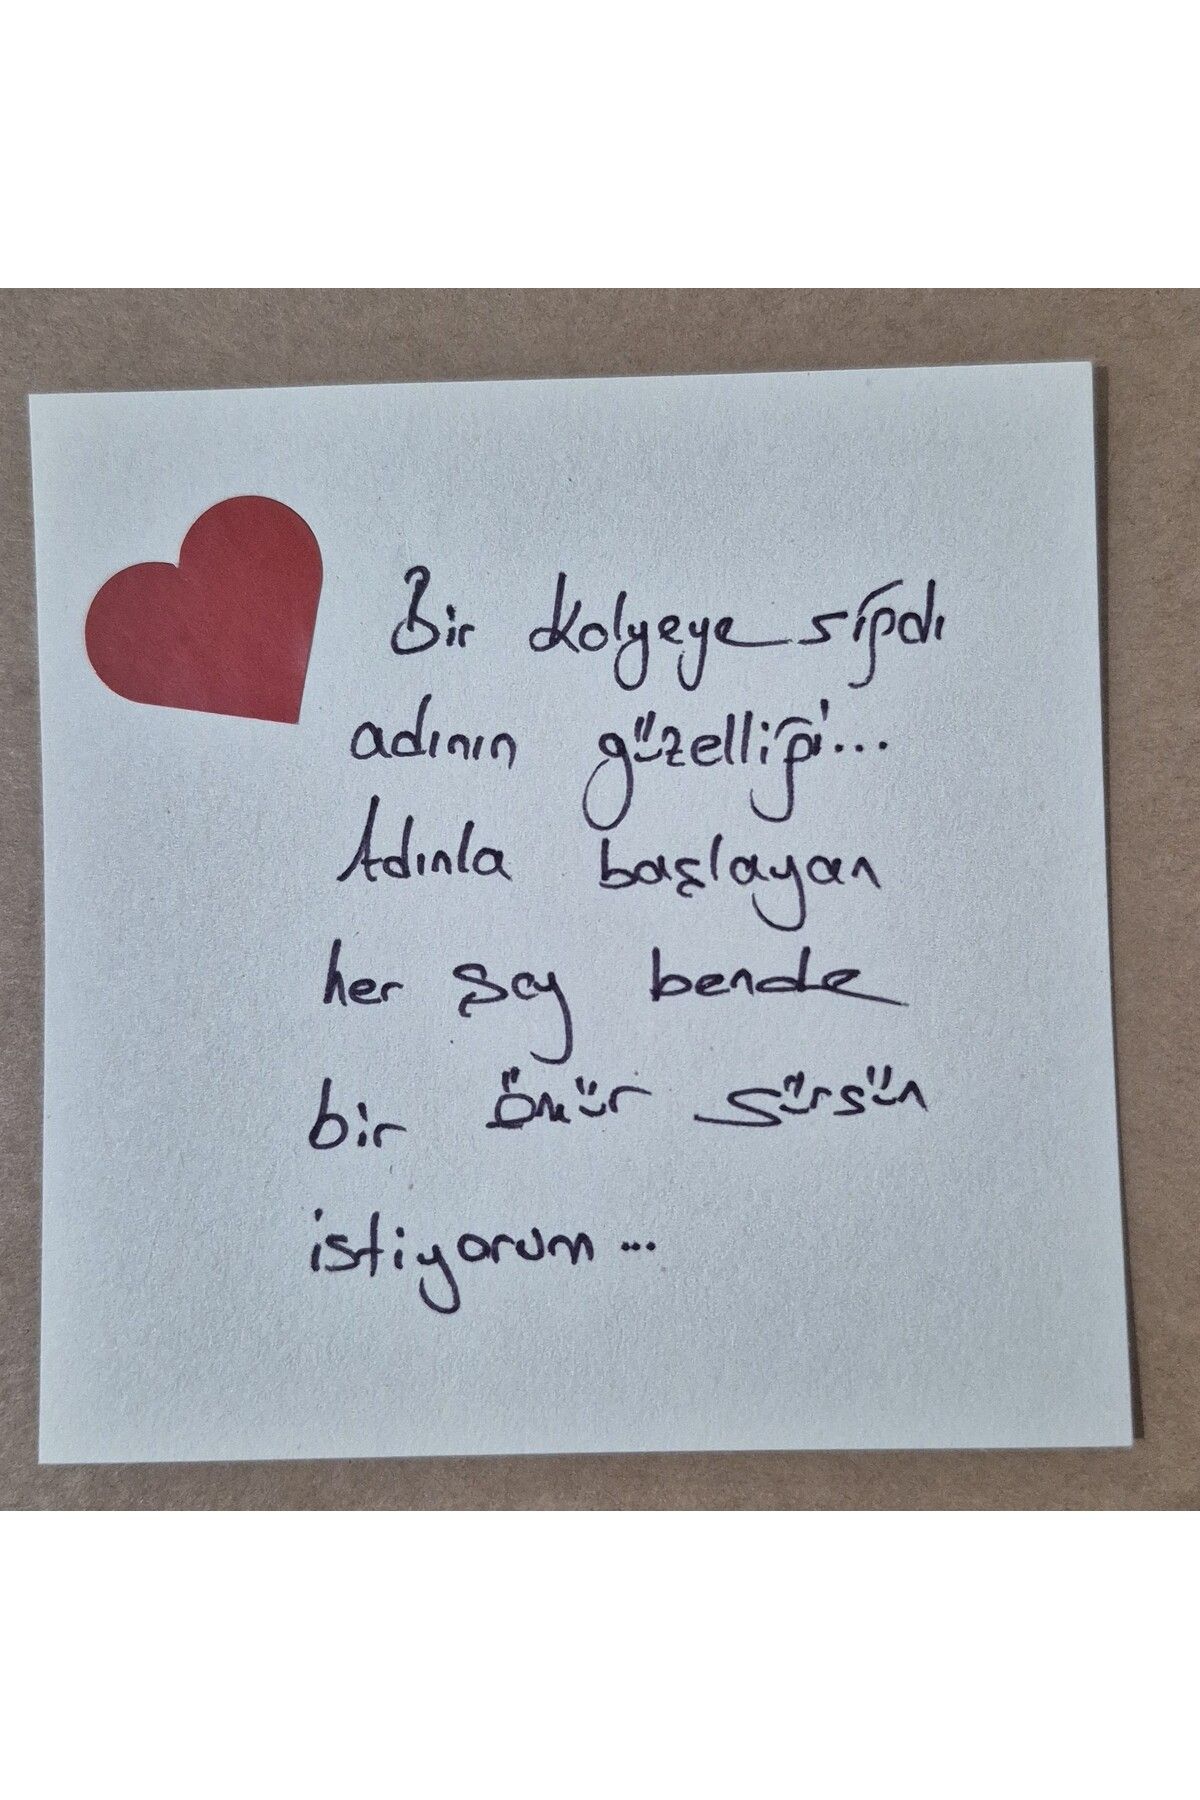 Bir Kolyeye sığdı
adının güzelliği...
Adınla başlayan
her şey bende
bir ömür sürsün
istiyorum...